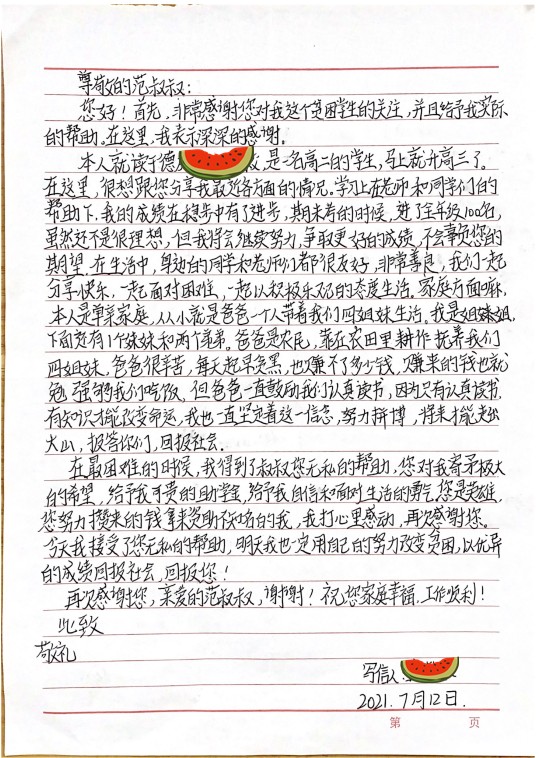 尊敬的范叔叔:
您好!首先,非常感谢您对我这个贫困学生的关注,并且给予我实际
的帮助。在这里,我表示深深的感谢。
本人就读于德 校,是一名高二的学生,马上就升高三了。
在这里,很想跟您分享我最近各方面的情况。学习上在老师和同学们的
帮助下,我的成绩在稳步中有了进步,期末考的时候,进了全年级100名,
虽然还不是很理想,但我将会继续努力,争取更好的成绩,不会辜负您的
期望。在生活中,身边的同学和老师们都很友好,非常善良,我们一起
分享快乐,一起面对困难,一起以积极乐观的态度生活。家庭方面嘛,
本人是单亲家庭,从小就是爸爸一个人带着我们四姐妹生活。我是姐姐,
下面还有1个妹妹和两个弟弟。爸爸是农民,靠在农田里耕作抚养我们
四姐妹。爸爸很辛苦,每天起早贪黑,也赚不了多少钱,赚来的钱也就
勉强够我们吃饭。但爸爸一直鼓励我们认真读书,因为只有认真读书,
有知识才能改变命运,我也一直坚定着这一信念,努力拼博,将来才能走出
大山,报答你们,回报社会。
在最困难的时候,我得到了叔叔您无私的帮助,您对我寄予极大
的希望,给予我可贵的助学金,给予我自信和面对生活的勇气,您是英雄,
您努力攒来的钱拿来资助不知名的我,我打心里感动,再次感谢您。
今天我接受了您无私的帮助,明天我也一定用自己的努力改变贫困,以优异
的成绩回报社会,回报您!
再次感谢您,亲爱的范叔叔,谢谢!祝您家庭幸福,工作顺利!
此致
敬礼
写信人:
2021.7月12日.
第 页